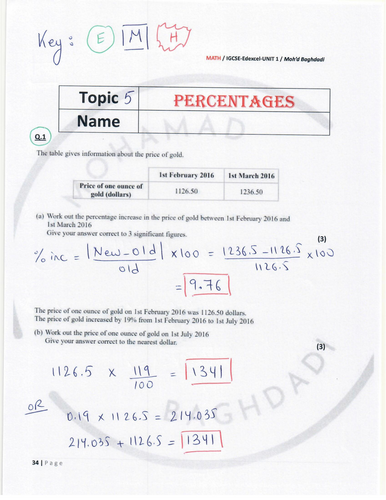 Key : E M H
MATH / IGCSE-Edexcel-UNIT 1 / Moh'd Baghdadi
Topic 5 PERCENTAGES
Name
Q.1
The table gives information about the price of gold.
1st February 2016 1st March 2016
Price of one ounce of gold (dollars) 1126.50 1236.50
(a) Work out the percentage increase in the price of gold between 1st February 2016 and
1st March 2016
Give your answer correct to 3 significant figures.
(3)
% inc = |New - Old| / old × 100 = 1236.5 - 1126.5 / 1126.5 × 100
= 9.76
The price of one ounce of gold on 1st February 2016 was 1126.50 dollars.
The price of gold increased by 19% from 1st February 2016 to 1st July 2016
(b) Work out the price of one ounce of gold on 1st July 2016
Give your answer correct to the nearest dollar.
(3)
1126.5 × 119/100 = 1341
OR
0.19 × 1126.5 = 214.035
214.035 + 1126.5 = 1341
34 | Page
MOHAMAD
BAGHDADI